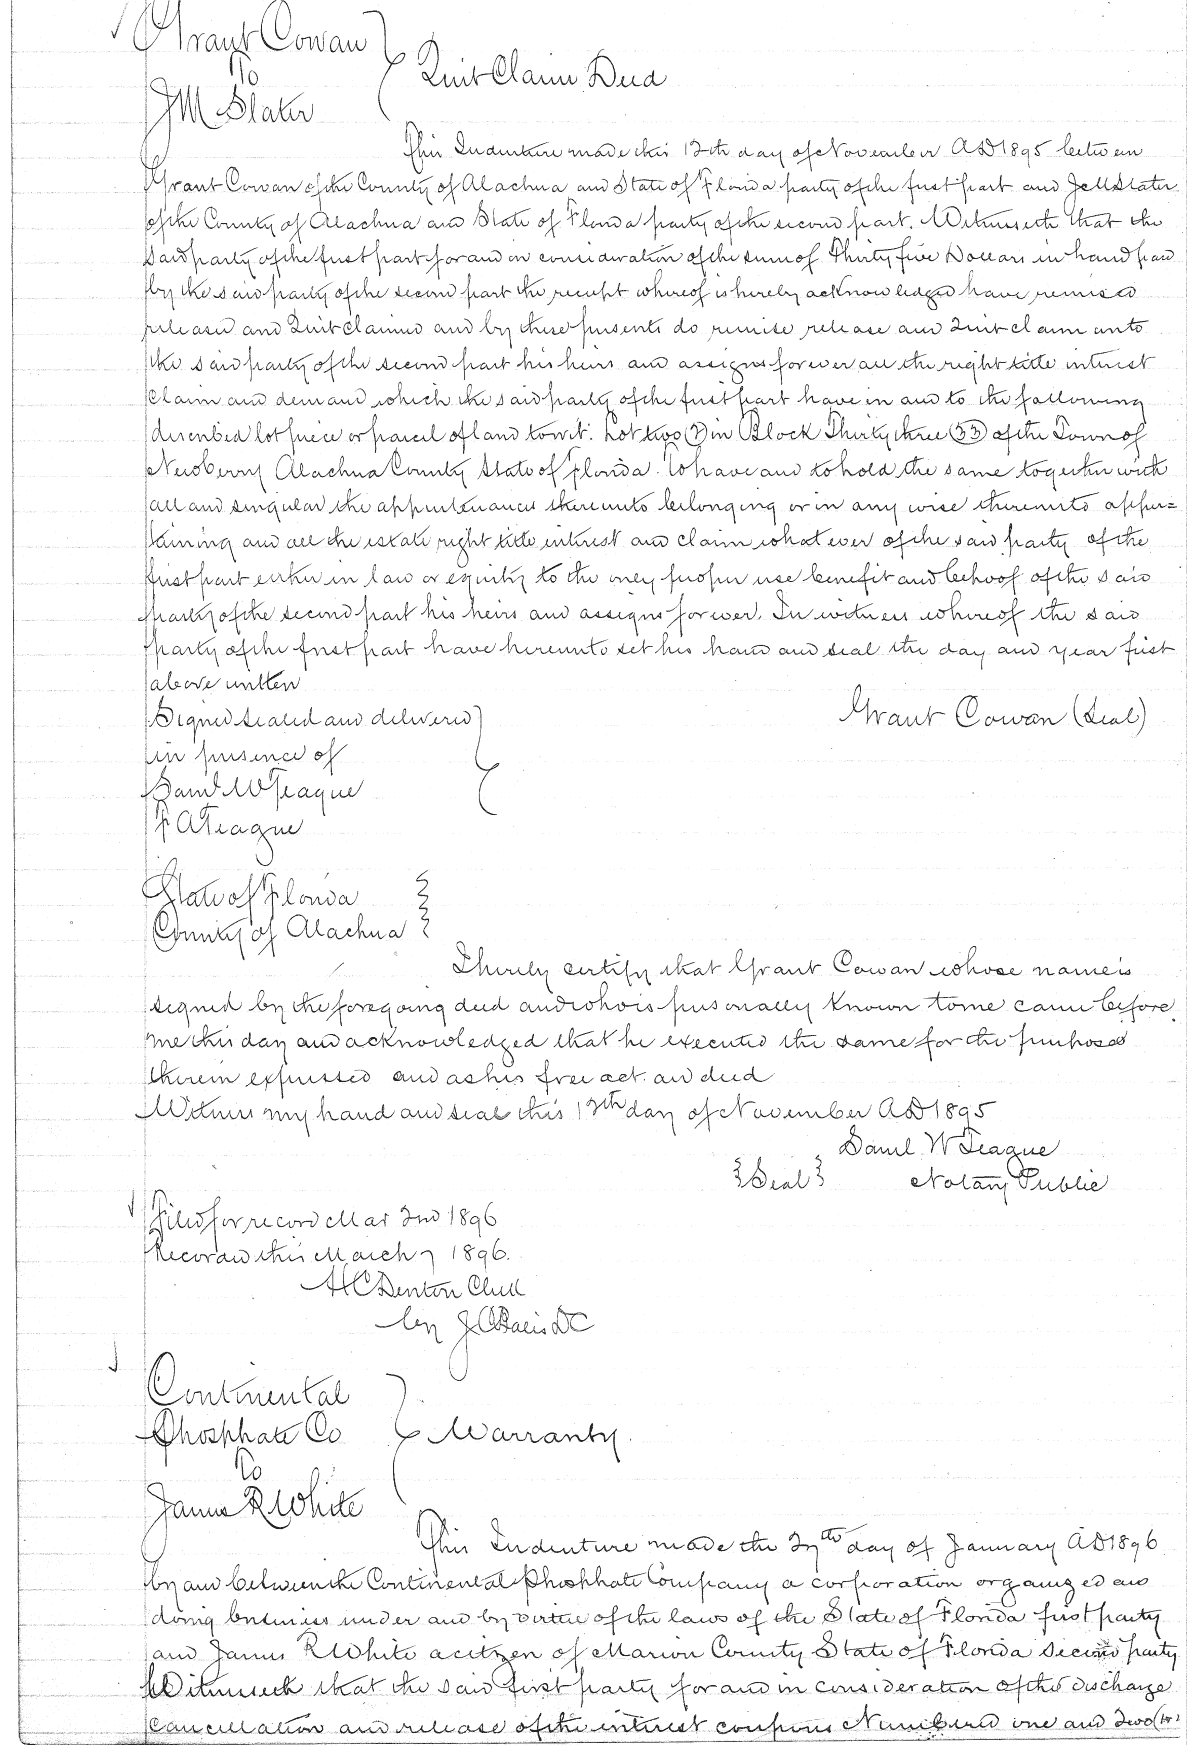 Grant Cowan
To
J M Slater
Quit Claim Deed
This Indenture made this 12th day of November AD 1895 between
Grant Cowan of the County of Alachua and State of Florida party of the first part and J M Slater
of the County of Alachua and State of Florida party of the second part. Witnesseth that the
said party of the first part for and in consideration of the sum of Thirty five Dollars in hand paid
by the said party of the second part the receipt whereof is hereby acknowledged have remised
released and Quit claimed and by these presents do remise release and Quit claim unto
the said party of the second part his heirs and assigns forever all the right title interest
claim and demand which the said party of the first part have in and to the following
described lot piece or parcel of land to wit. Lot two (2) in Block Thirty three (33) of the Town of
Newberry Alachua County State of Florida. To have and to hold the same together with
all and singular the appurtenances thereunto belonging or in any wise thereunto apper=
taining and all the estate right title interest and claim whatever of the said party of the
first part either in law or equity to the only proper use benefit and behoof of the said
party of the second part his heirs and assigns forever. In witness whereof the said
party of the first part have hereunto set his hand and seal the day and year first
above written
Signed sealed and delivered
Grant Cowan (Seal)
in presence of
Saml W Teague
A Teague
State of Florida
County of Alachua
I hereby certify that Grant Cowan whose name is
signed by the foregoing deed and who is personally known to me came before
me this day and acknowledged that he executed the same for the purposes
therein expressed and as his free act and deed
Witness my hand and seal this 12th day of November AD 1895
Saml W Teague
{Seal} Notary Public
Filed for record Mar 2nd 1896
Recorded this March 7 1896.
H C Denton Clerk
by J C DC
Continental
Phosphate Co
Warranty.
To
James R White
This Indenture made the 27th day of January AD 1896
by and between the Continental Phosphate Company a corporation organized and
doing business under and by virtue of the laws of the State of Florida first party
and James R White a citizen of Marion County State of Florida second party
Witnesseth that the said first party for and in consideration of the discharge
cancellation and release of the interest coupons Numbered one and two